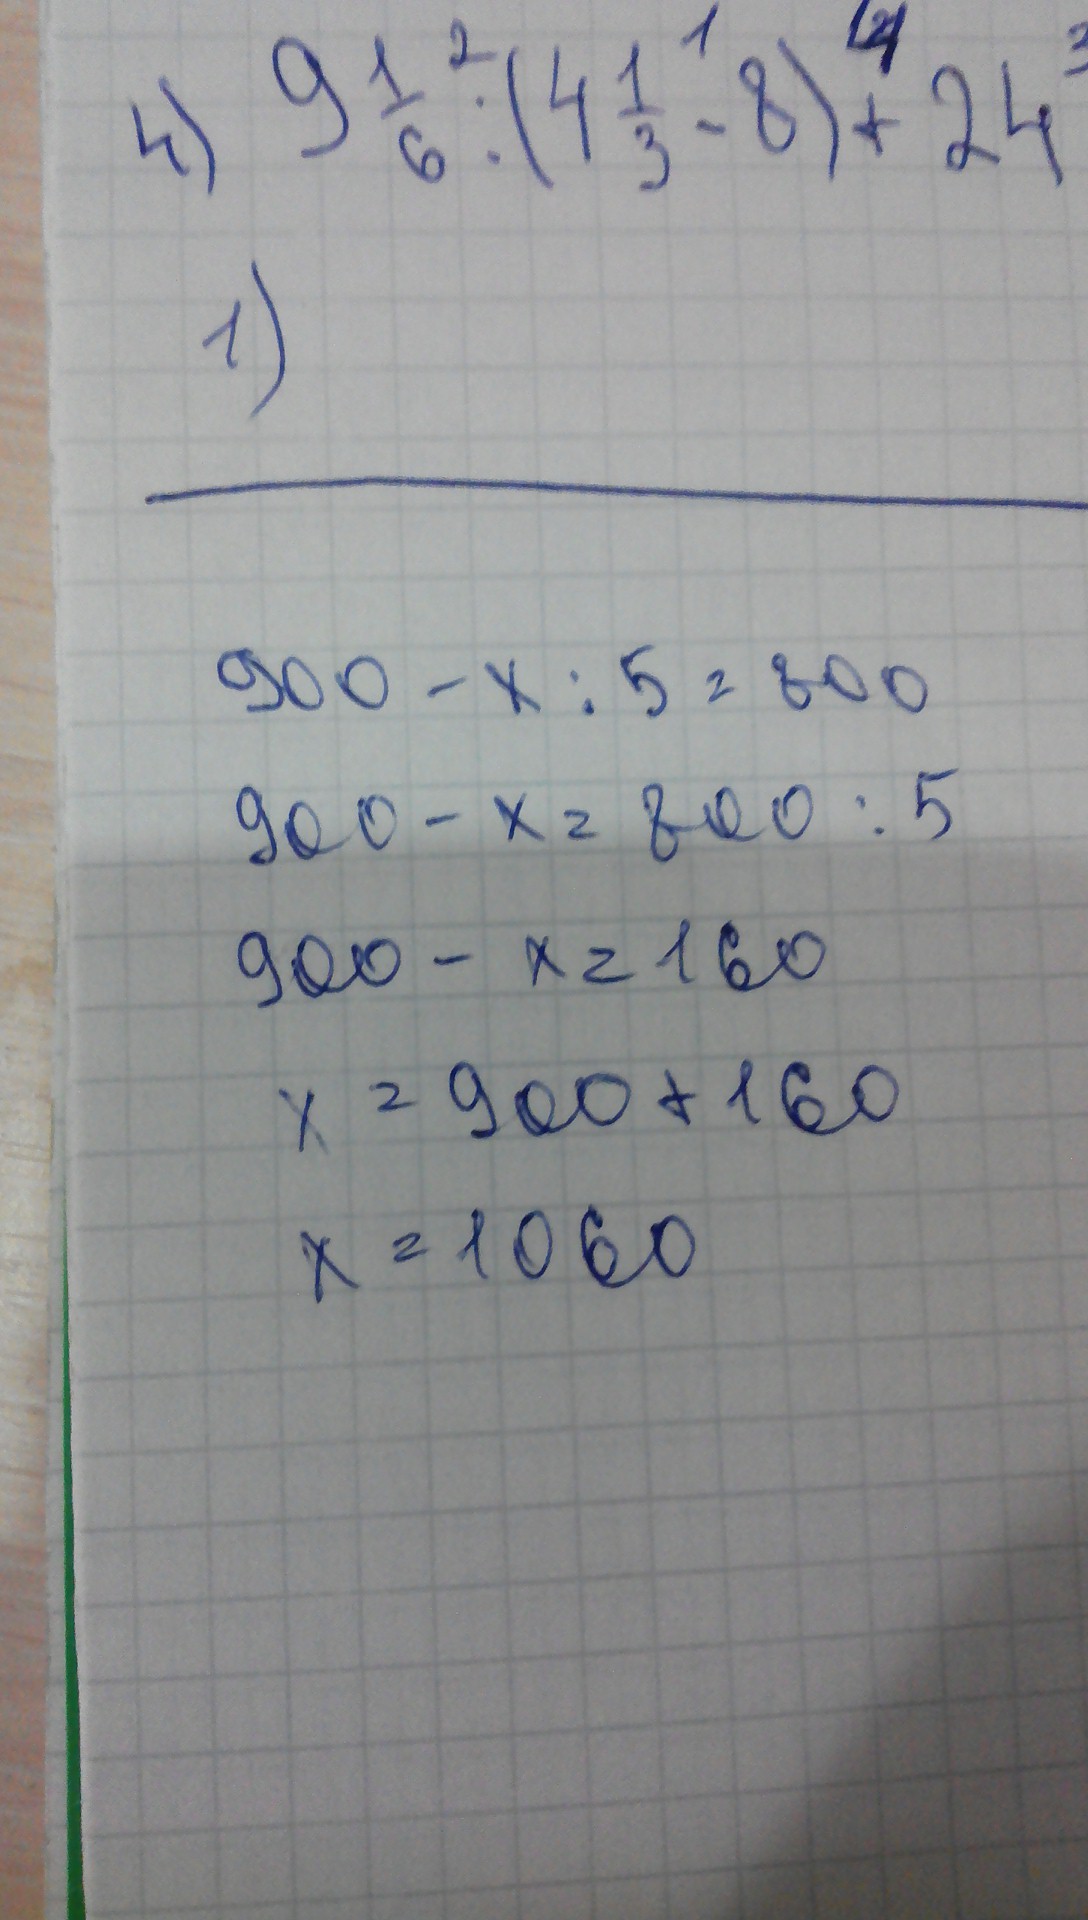 4) 9 1/6 : (4 1/3 - 8) + 24
1)
900 - x : 5 = 800
900 - x = 800 : 5
900 - x = 160
x = 900 + 160
x = 1060